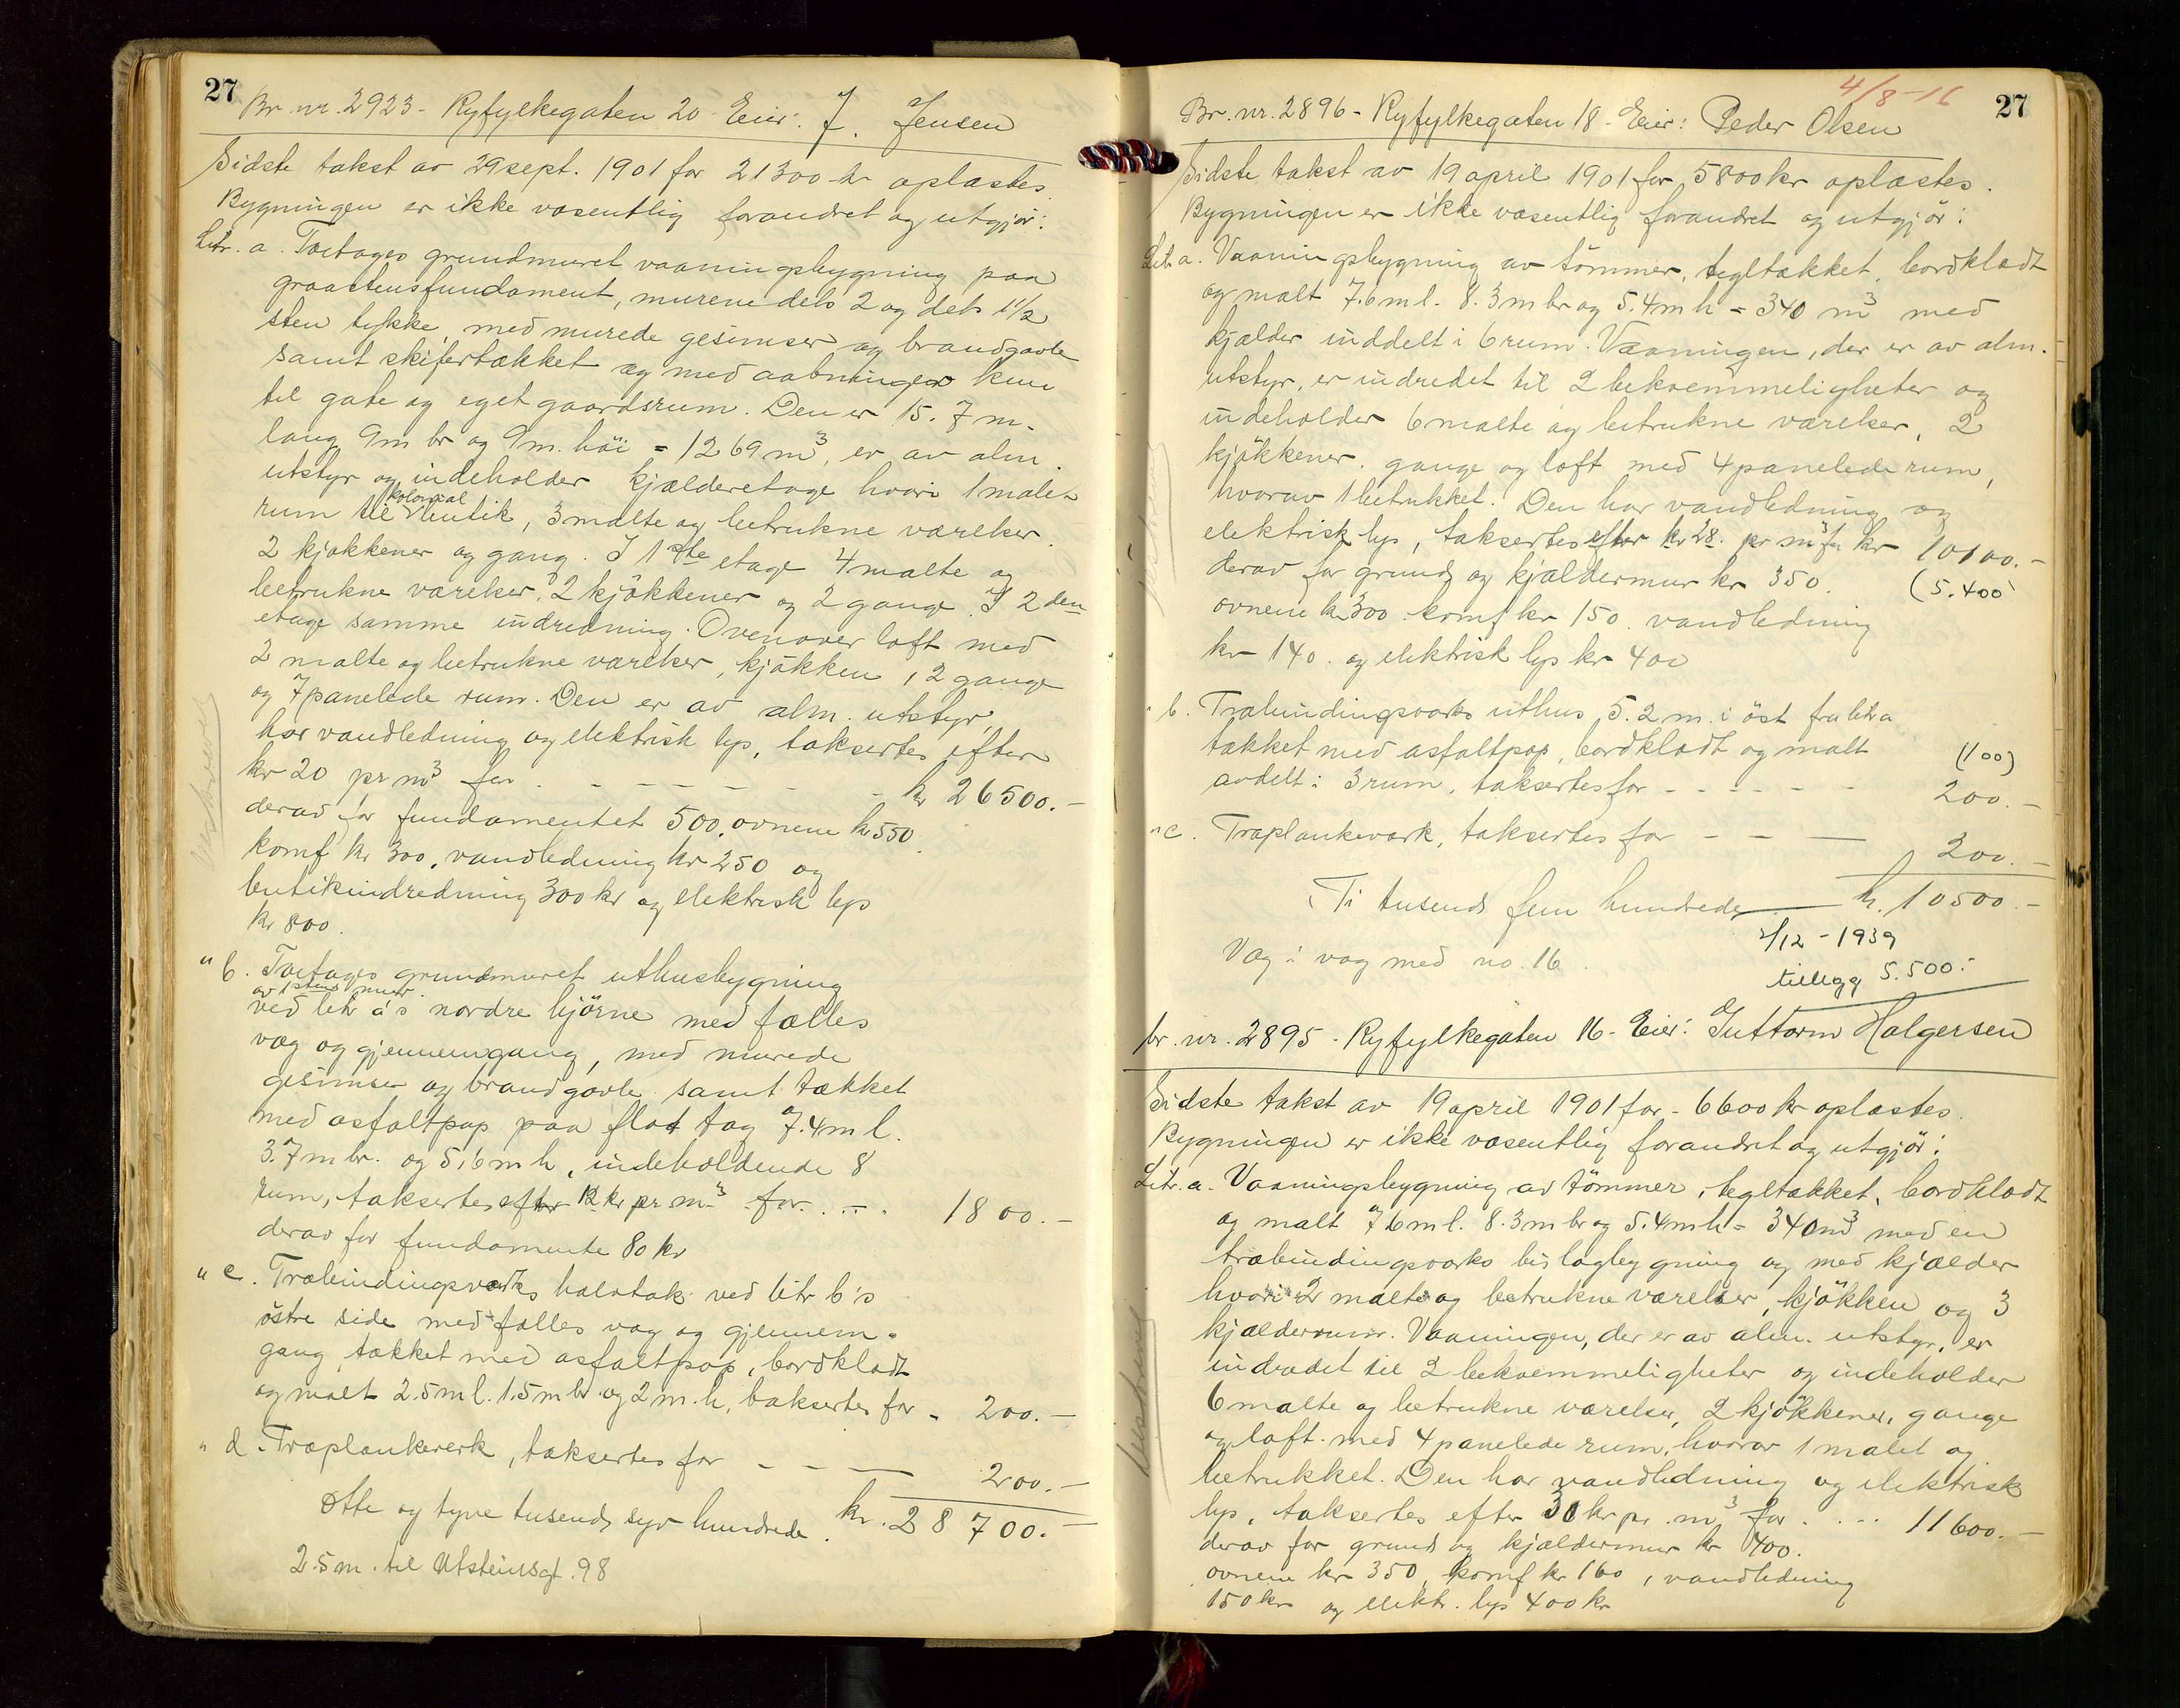 27
Br nr. 2923 - Ryfylkegaten 20 Eier: J. Jensen
Sidste takst av 29 sept. 1901 for 21300 kr oplæstes.
Bygningen er ikke væsentlig forandret og utgjør:
Litr. a. Toetages grundmuret vaaningsbygning paa
graastensfundament, murene dels 2 og dels 1½
sten tykke, med murede gesimser og brandgavle
samt skifertækket og med aabninger kun
til gate og eget gaardsrum. Den er 15.7 m.
lang 9m br og 9m. høi = 1269 m³, er av alm.
utstyr og indeholder kjælderetage hvori 1 malt
kolonial
rum til butik, 3 malte og betrukne værelser.
2 kjøkkener og gang. I 1ste etage 4 malte og
betrukne værelser, 2 kjøkkener og 2 gange. I 2den
etage samme indredning. Ovenover loft med
2 malte og betrukne værelser, kjøkken, 2 gange
og 7 panelede rum. Den er av alm. utstyr,
har vandledning og elektrisk lys, taksertes efter
kr 20 pr m³ for . - - - - - - kr 26500.-
derav for fundamentet 500, ovnene kr 550.
komf kr 300, vandledning kr 250 og
butikindredning 300 kr og elektrisk lys
kr 800.
" b. Toetages grundmuret uthusbygning
av 1 stens mur
ved litr a's nordre hjørne med fælles
væg og gjennemgang, med murede
gesimser og brandgavle samt tækket
med asfaltpap paa flat tag 7.4 m l.
3.7 m br. og 5,6 m h, indeholdende 8
rum, taksertes efter 12 kr pr m³ for. . - . 1800.-
derav for fundamente 80 kr
" c. Træbindingsverks halvtak ved litr b's
østre side med fælles væg og gjennem-
gang tækket med asfaltpap, bordklædt
og malt 2.5 m l. 1.5 m br. og 2 m. h, taksertes for - 200.-
" d. Træplankeverk, taksertes for - - — 200.-
Otte og tyve tusend syv hundrede. kr. 28700.-
2.5 m. til Utsteinsgt. 98
4/8-16
27
Br. nr. 2896 - Ryfylkegaten 18 - Eier: Peder Olsen
Sidste takst av 19 april 1901 for 5800 kr oplæstes.
Bygningen er ikke væsentlig forandret og utgjør:
Litr. a. Vaaningsbygning av tømmer, tegltækket, bordklædt
og malt 7.6 m l. 8.3 m br og 5.4 m h = 340 m³ med
kjælder inddelt i 6 rum. Vaaningen, der er av alm.
utstyr, er indredet til 2 bekvemmeligheter og
indeholder 6 malte og betrukne værelser, 2
kjøkkener, gange og loft med 4 panelede rum,
hvorav 1 betrukket. Den har vandledning og
elektrisk lys, taksertes efter kr 28. pr m³ for kr 10100.-
derav for grund og kjældermur kr 350. (5.400)
ovnene kr 300 komf kr 150. vandledning
kr 140. og elektrisk lys kr 400
" b. Træbindingsverks uthus 5.2 m. i øst fra litr a
tækket med asfaltpap, bordklædt og malt (100)
avdelt i 3 rum, taksertes for - - - - - - 200.-
" c. Træplankeverk, taksertes for - - — 200.-
Ti tusend fem hundrede — kr. 10500.-
2/12 - 1939
Væg i væg med no. 16.
tillegg 5.500.-
br. nr. 2895 - Ryfylkegaten 16 - Eier: Guttorm Halgersen
Sidste takst av 19 april 1901 for - 6600 kr oplæstes.
Bygningen er ikke væsentlig forandret og utgjør:
Litr. a. Vaaningsbygning av tømmer, tegltækket, bordklædt
og malt 7.6 m l. 8.3 m br og 5.4 m h = 340 m³ med en
træbindingsverks bislagbygning og med kjælder
hvori 2 malte og betrukne værelser, kjøkken og 3
kjælderrum. Vaaningen, der er av alm. utstyr, er
indredet til 2 bekvemmeligheter og indeholder
6 malte og betrukne værelser, 2 kjøkkener, gange
og loft med 4 panelede rum, hvorav 1 malt og
betrukket. Den har vandledning og elektrisk
lys, taksertes efter 30 kr pr. m³ for . . - - 11600.-
derav for grund og kjældermur kr 400.
ovnene kr 350, komf kr 160, vandledning
150 kr og elektr. lys 400 kr